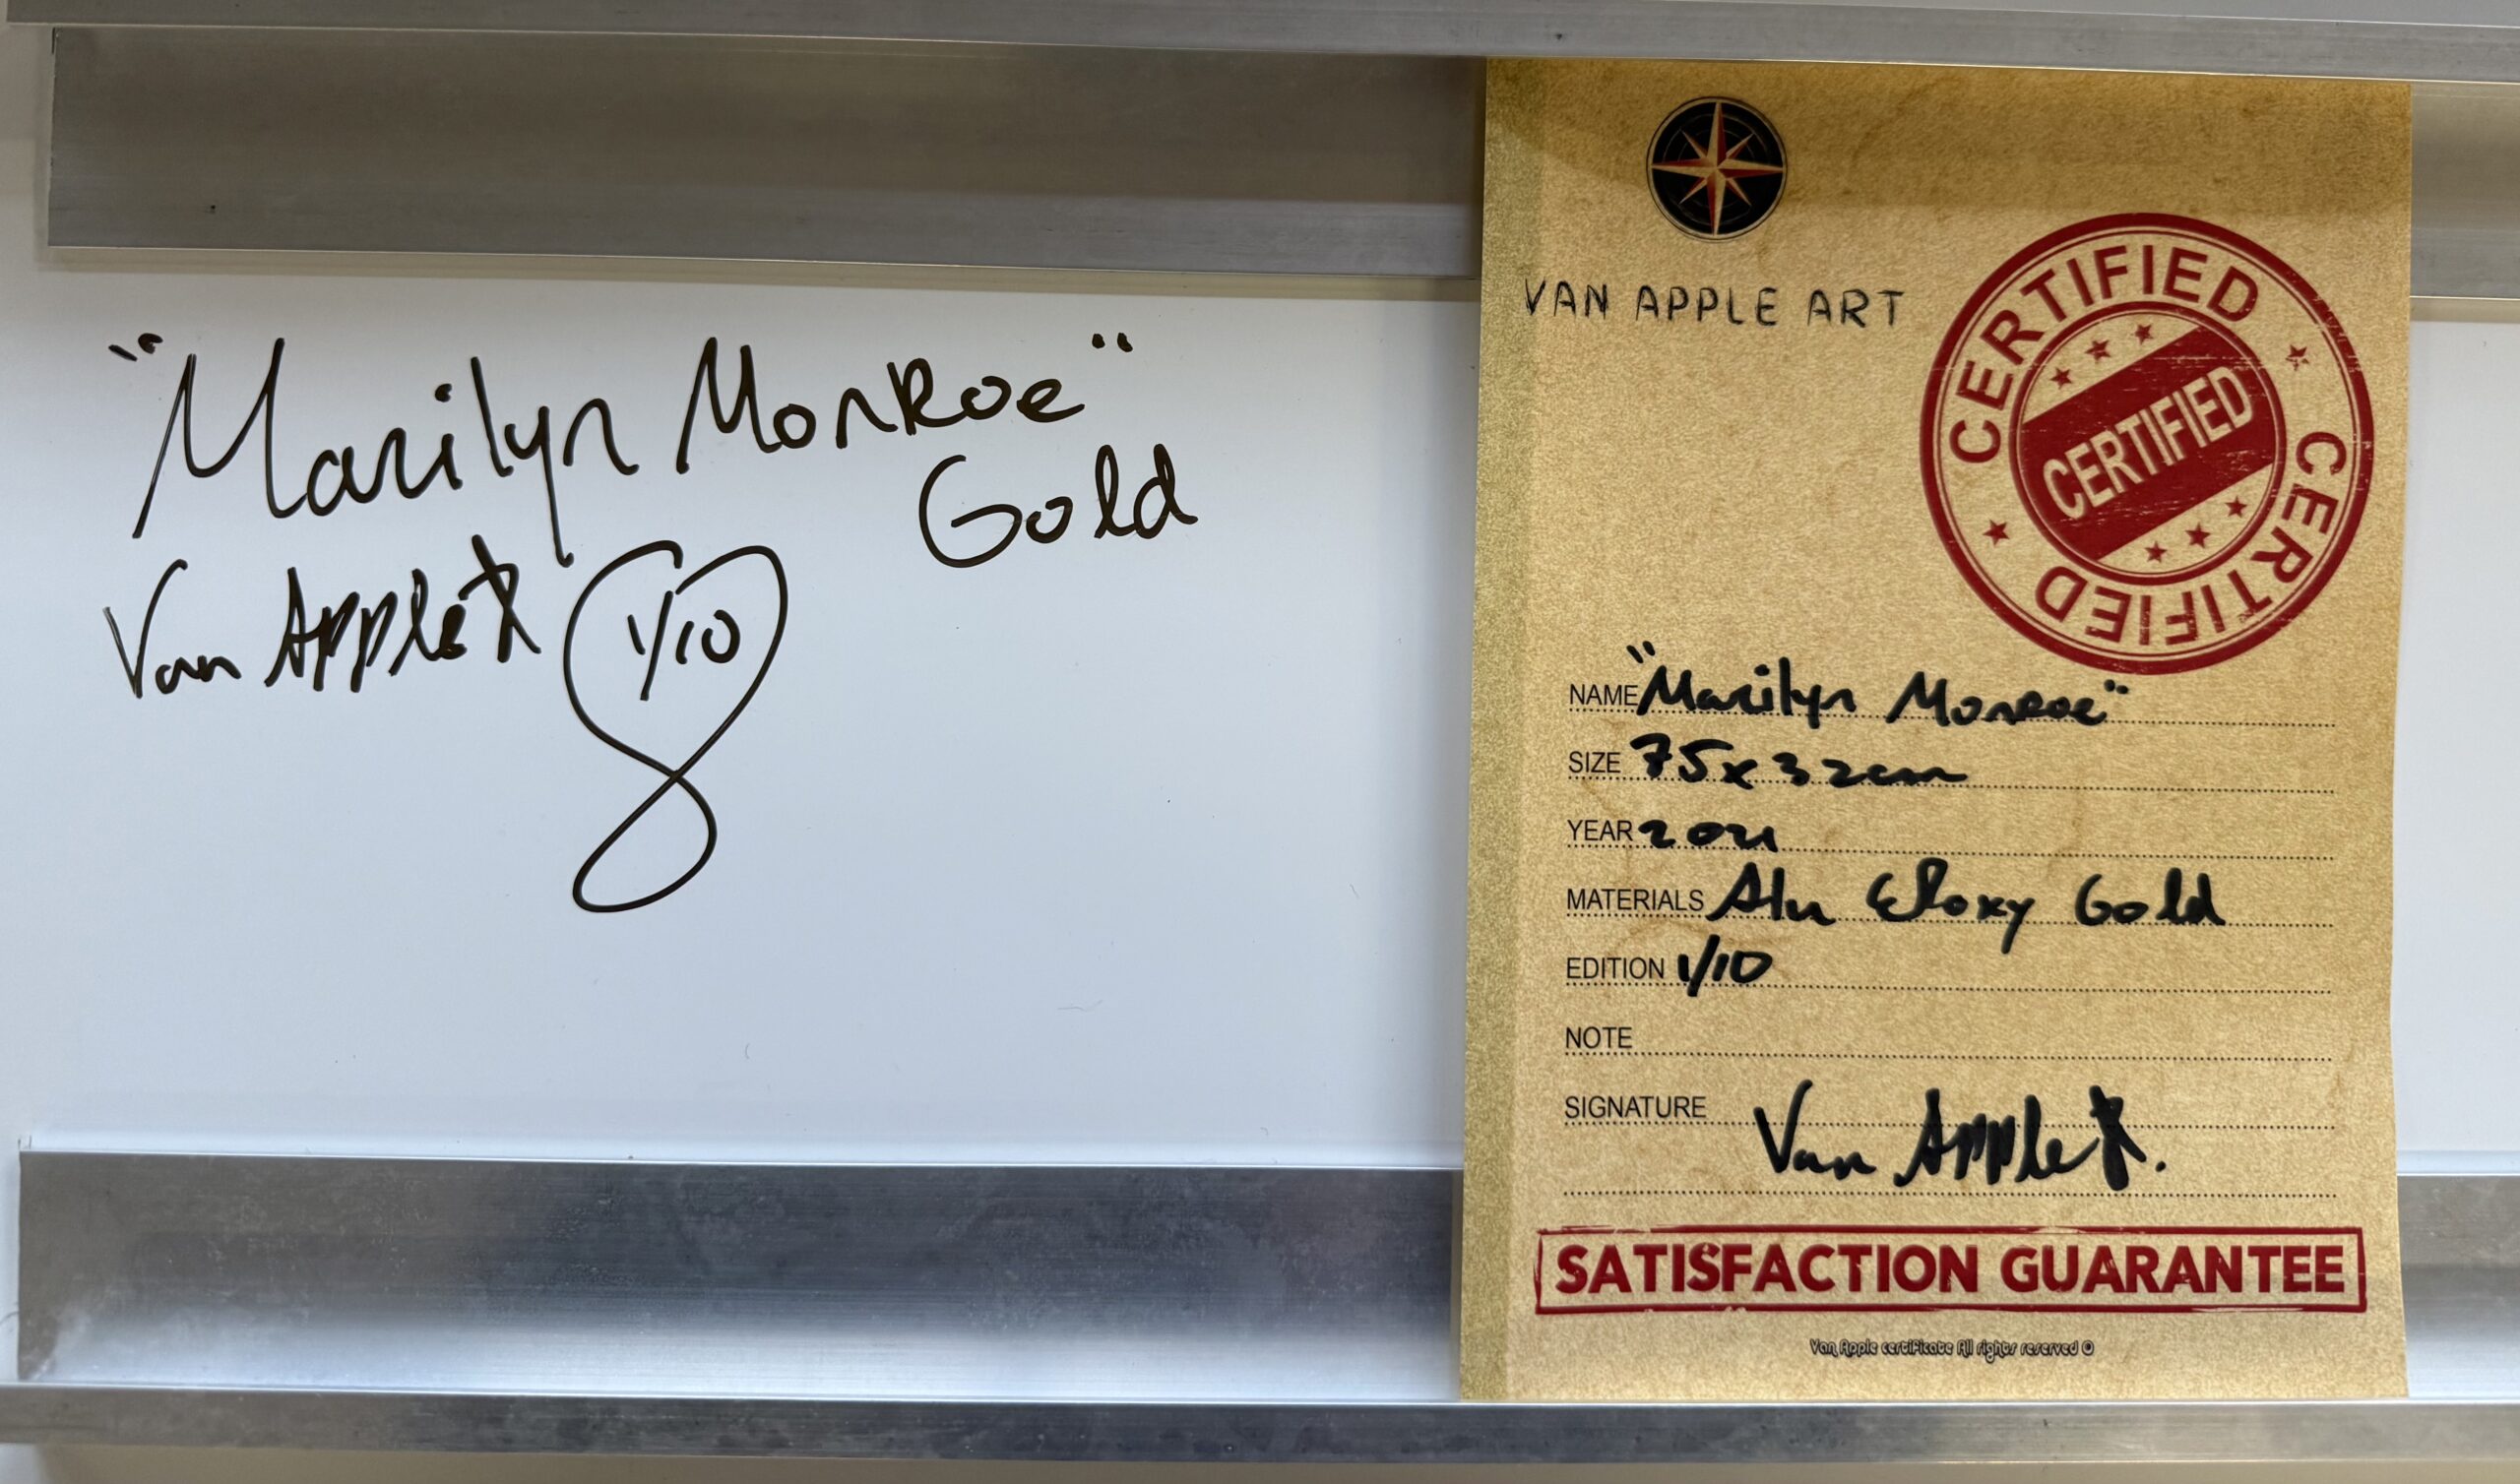 "Marilyn Monroe"
Gold
Van Apple 1/10
VAN APPLE ART
CERTIFIED CERTIFIED
CERTIFIED
NAME "Marilyn Monroe"
SIZE 75x32cm
YEAR 2021
MATERIALS Alu Eloxy Gold
EDITION 1/10
NOTE
SIGNATURE
Van Apple
SATISFACTION GUARANTEE
Van Apple certificate All rights reserved ©